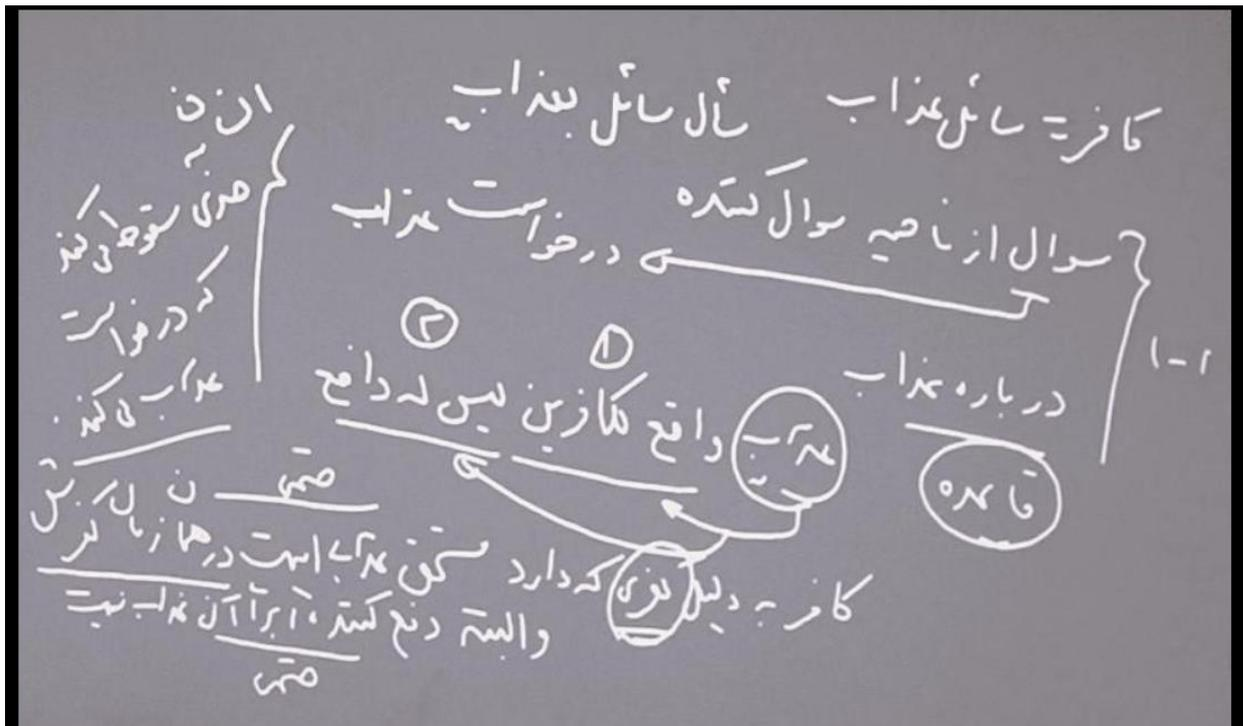 کافر = سائل عذاب سأل سائل بعذاب
سوال از ناحیه سوال کننده درخواست عذاب
۱-۱
درباره عذاب
قاعده
۱ ۲
عذاب واقع للکافرین لیس له دافع
کافر به دلیل کفری که دارد مستحق عذاب است در همان زمان کفرش
حتمی
والبته دفع کننده ای برای آن عذاب نیست
حتمی
انسان به
سقوط می کند
که درخواست
عذاب می کند.